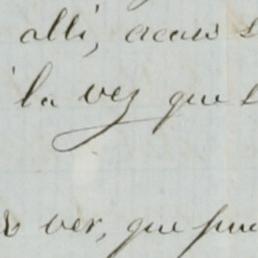 alli, acaso
la vez que
ver, que